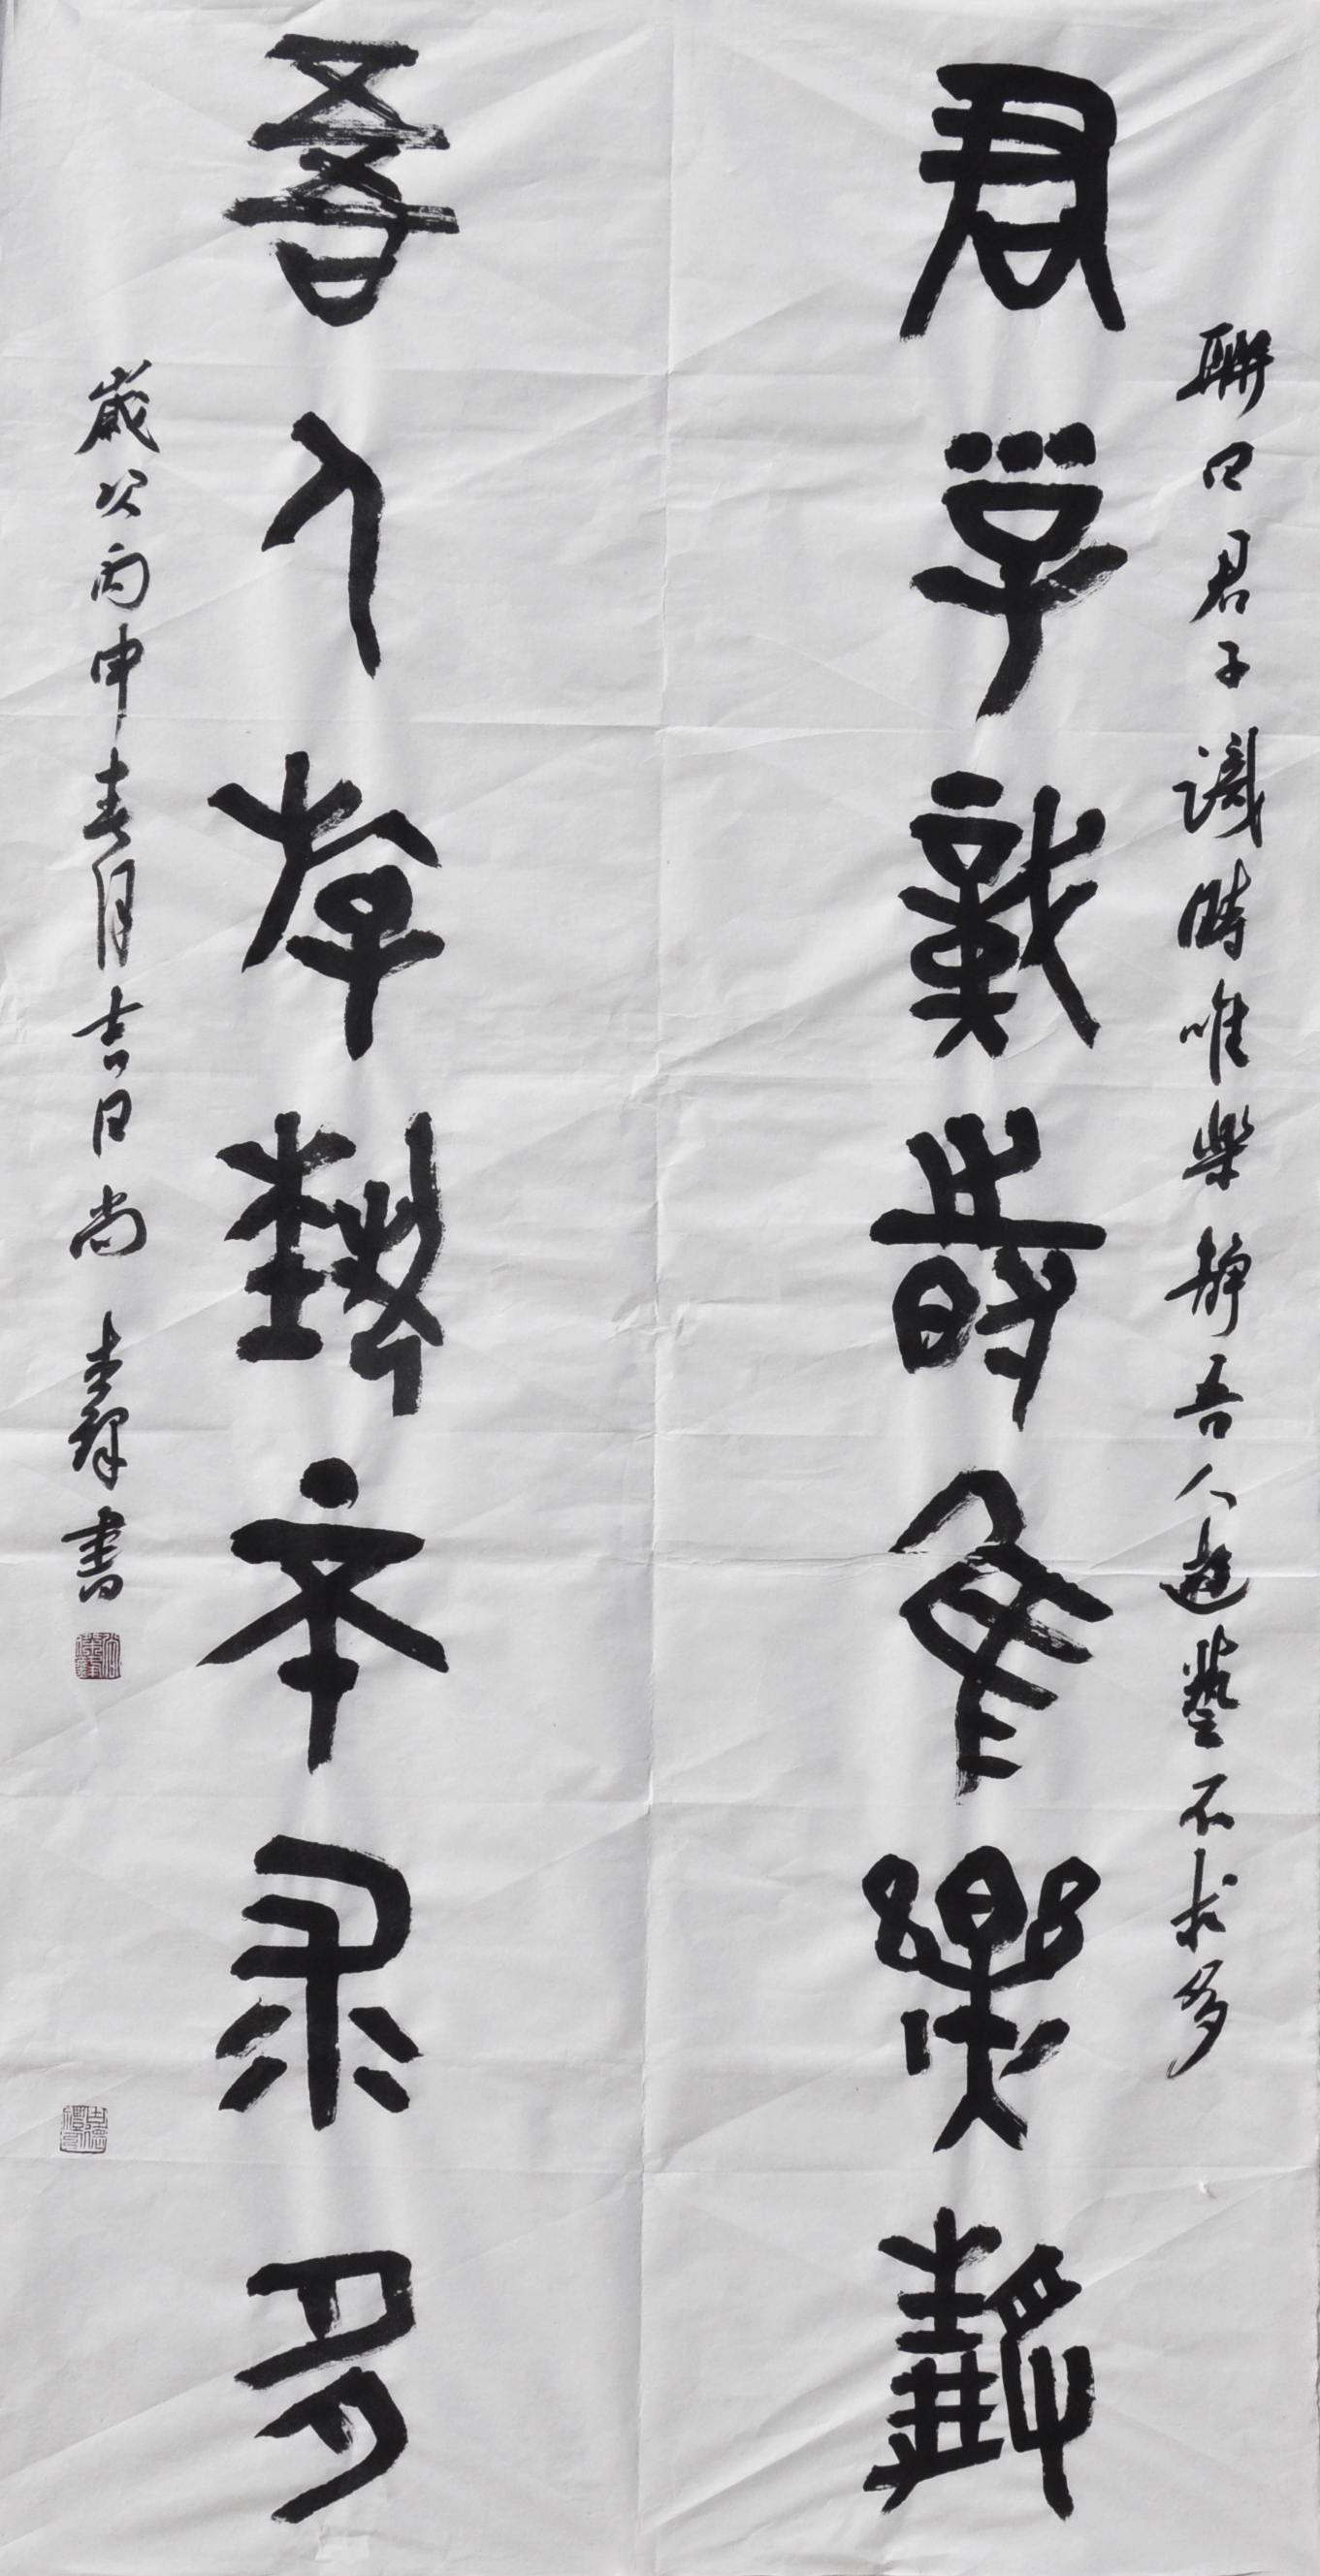 聯曰君子識時唯樂靜吾人遊藝不求多
君子識時唯樂靜
吾人游藝不求多
歲次丙申春月吉日尚 書